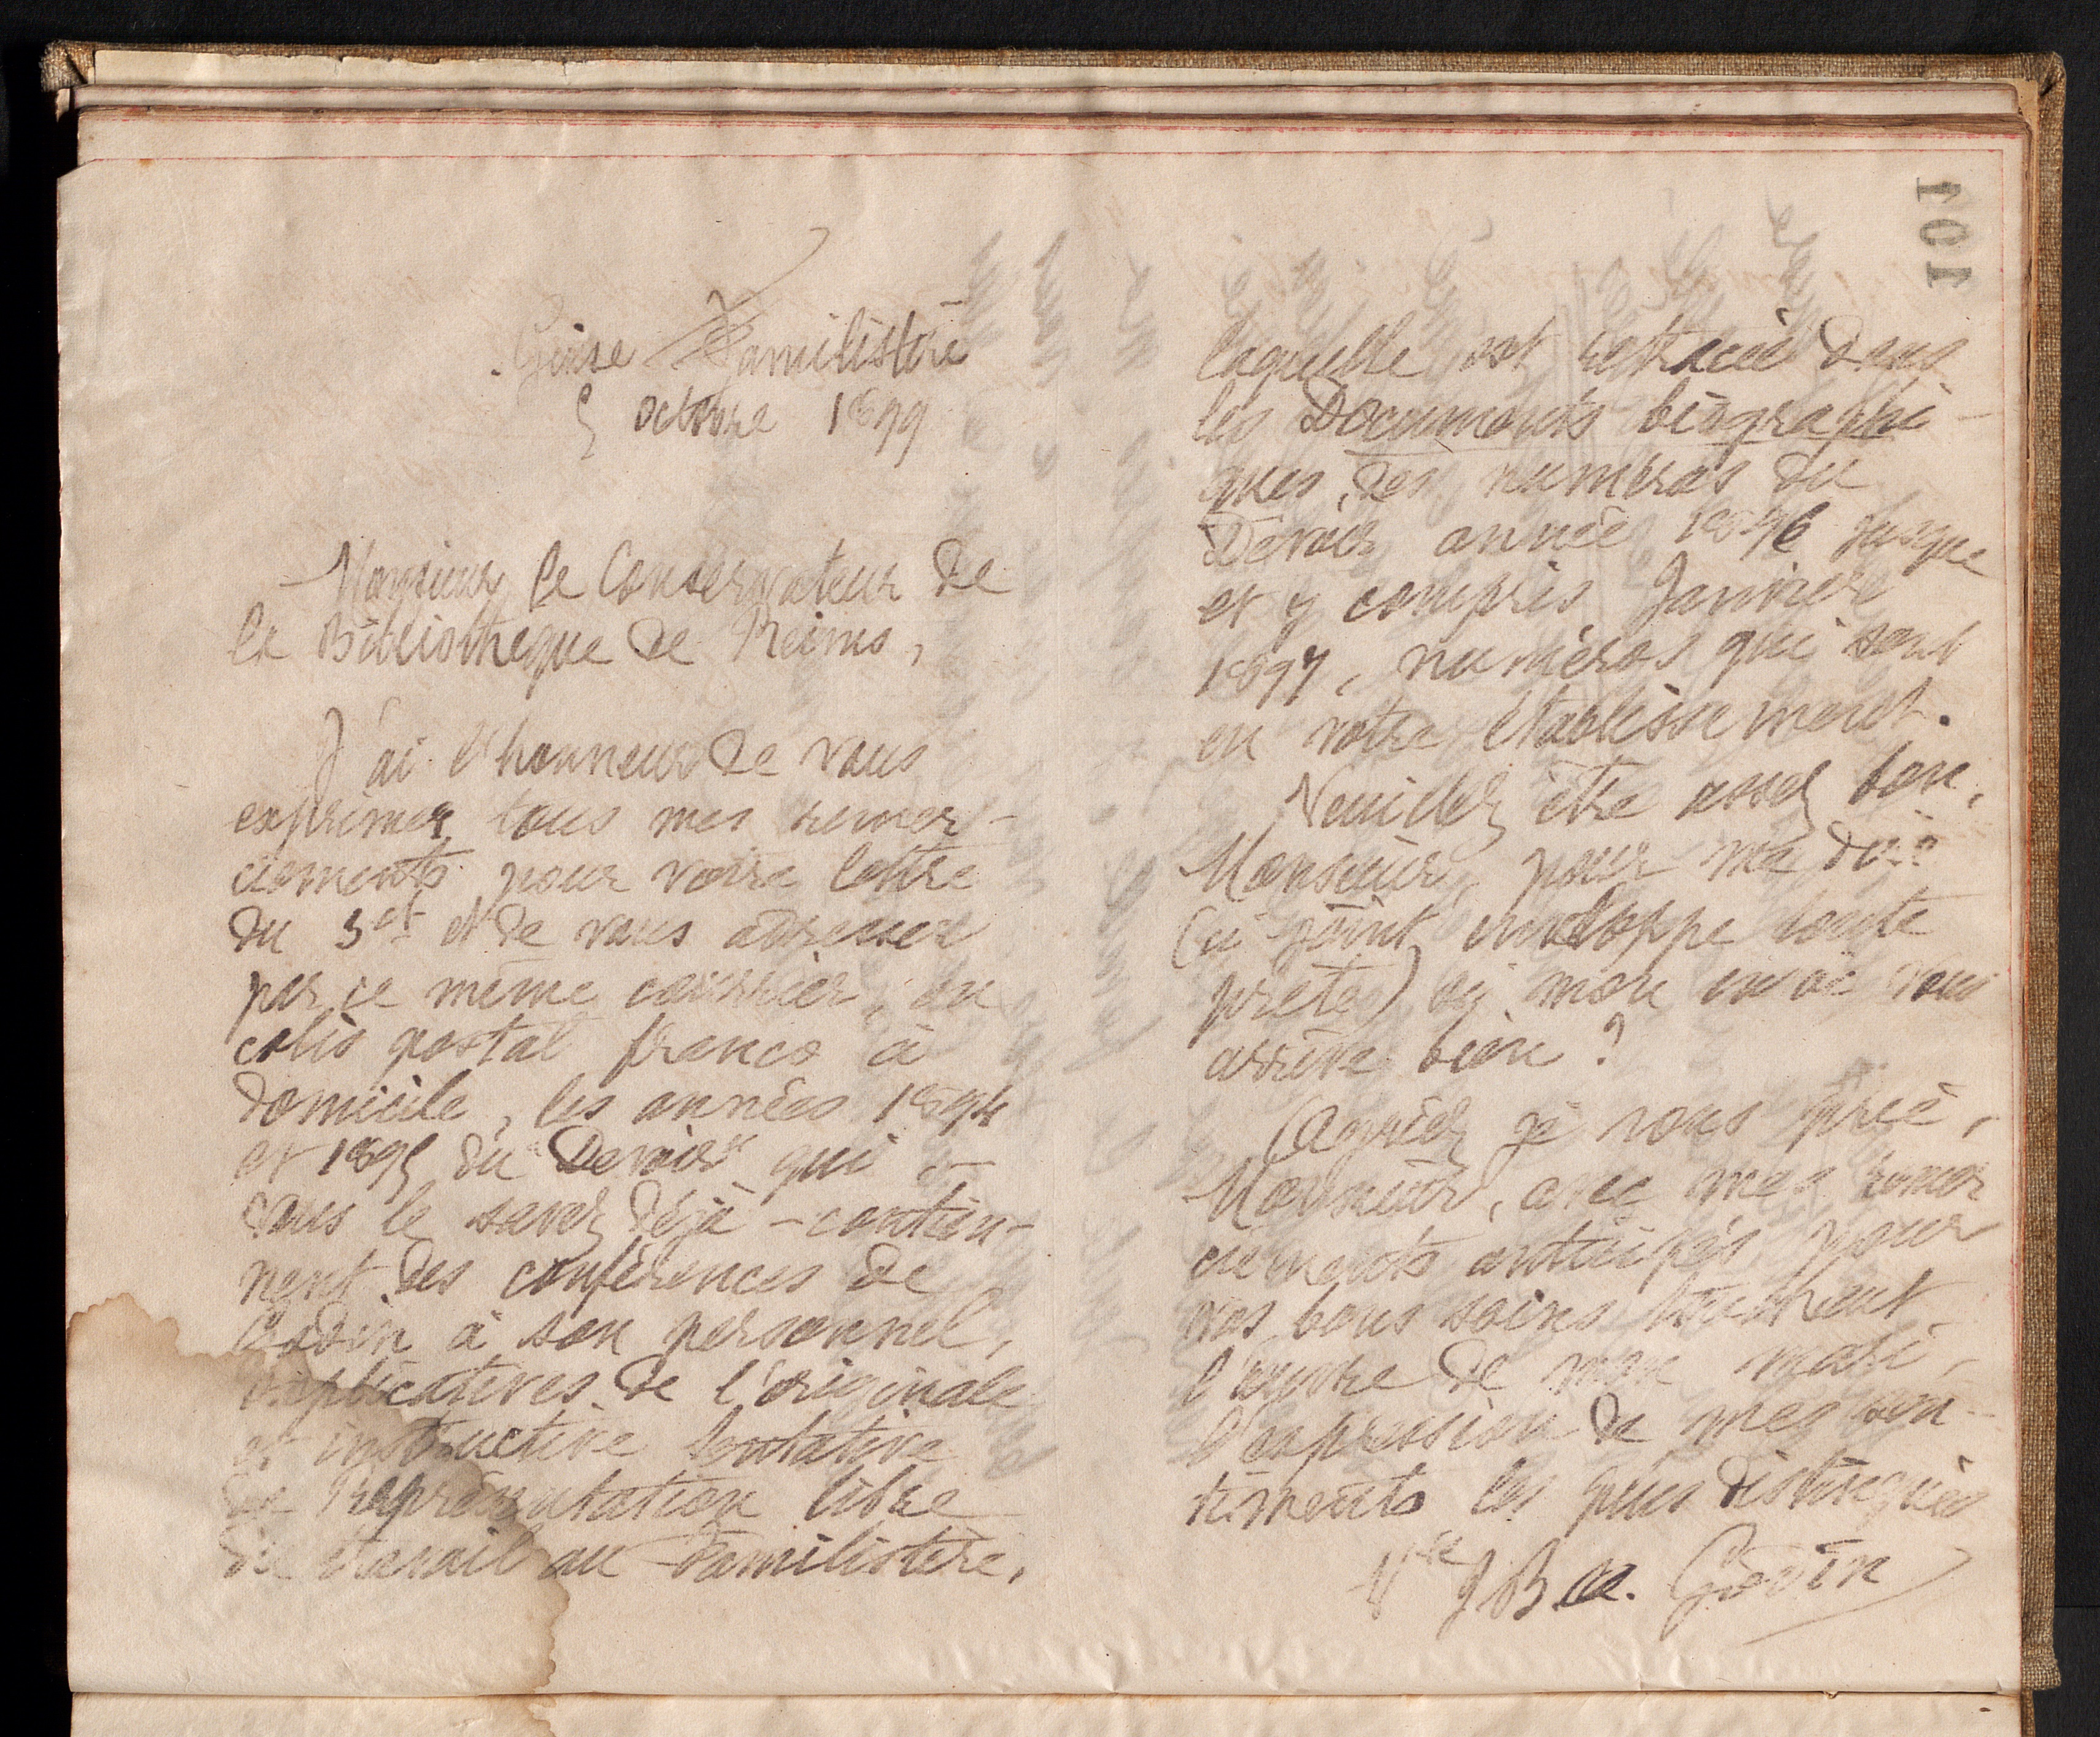 Guise Familistère
5 octobre 1899
Monsieur le Conservateur de
la Bibliothèque de Reims,
J'ai l'honneur de vous
exprimer tous mes remer-
ciements pour votre lettre
du 3 et et de vous adresser
par ce même courrier, en
colis postal franco à
domicile, les années 1894
et 1895 du "Devoir" qui -
vous le savez déjà - contien-
nent des conférences de
Godin à son personnel,
explicatives de l'originale
et instructive tentative
de Représentation libre
du travail au Familistère,
101
laquelle est retracée dans
les Documents biographi-
ques, des numéros du
Devoir année 1896 jusque
et y compris Janvier
1897, numéros qui sont
en votre établissement.
Veuillez être assez bon,
Monsieur, pour me dire
(ci-joint enveloppe toute
prête) si mon envoi vous
arrive bien ?
Agréez je vous prie,
Monsieur, avec mes remer
ciements anticipés pour
vos bons soins touchant
l'œuvre de mon mari,
l'expression de mes sen-
timents les plus distingués
Vve J. B. A. Godin